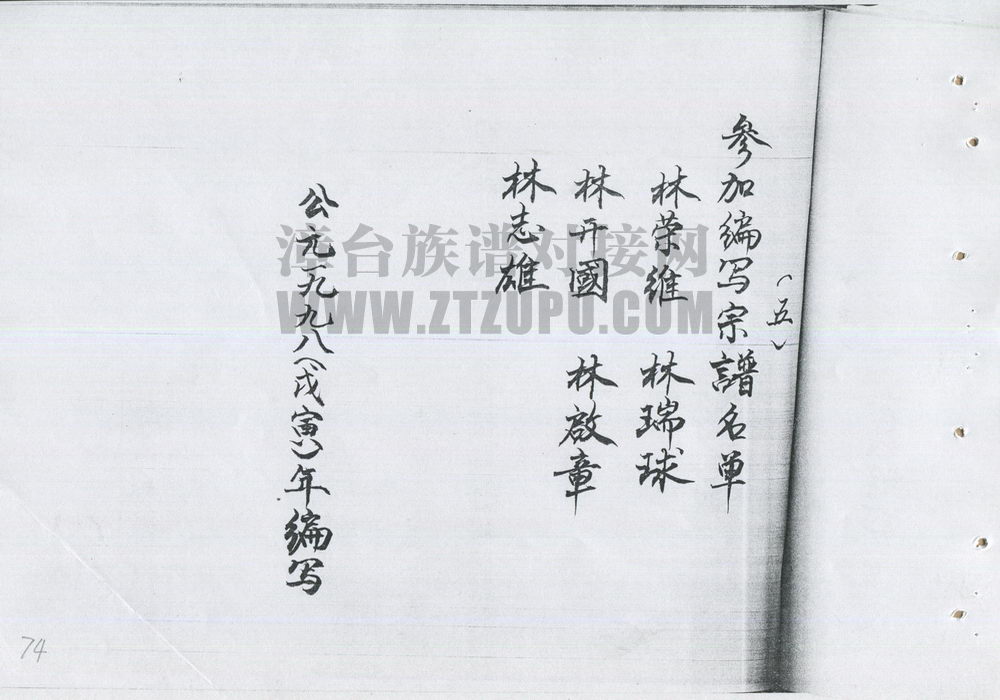 （五）
参加编写宗譜名单
林荣維 林瑞球
林开國 林啟章
林志雄
公元一九九八（戊寅）年编写
漳台族谱对接网
WWW.ZTZUPU.COM
74